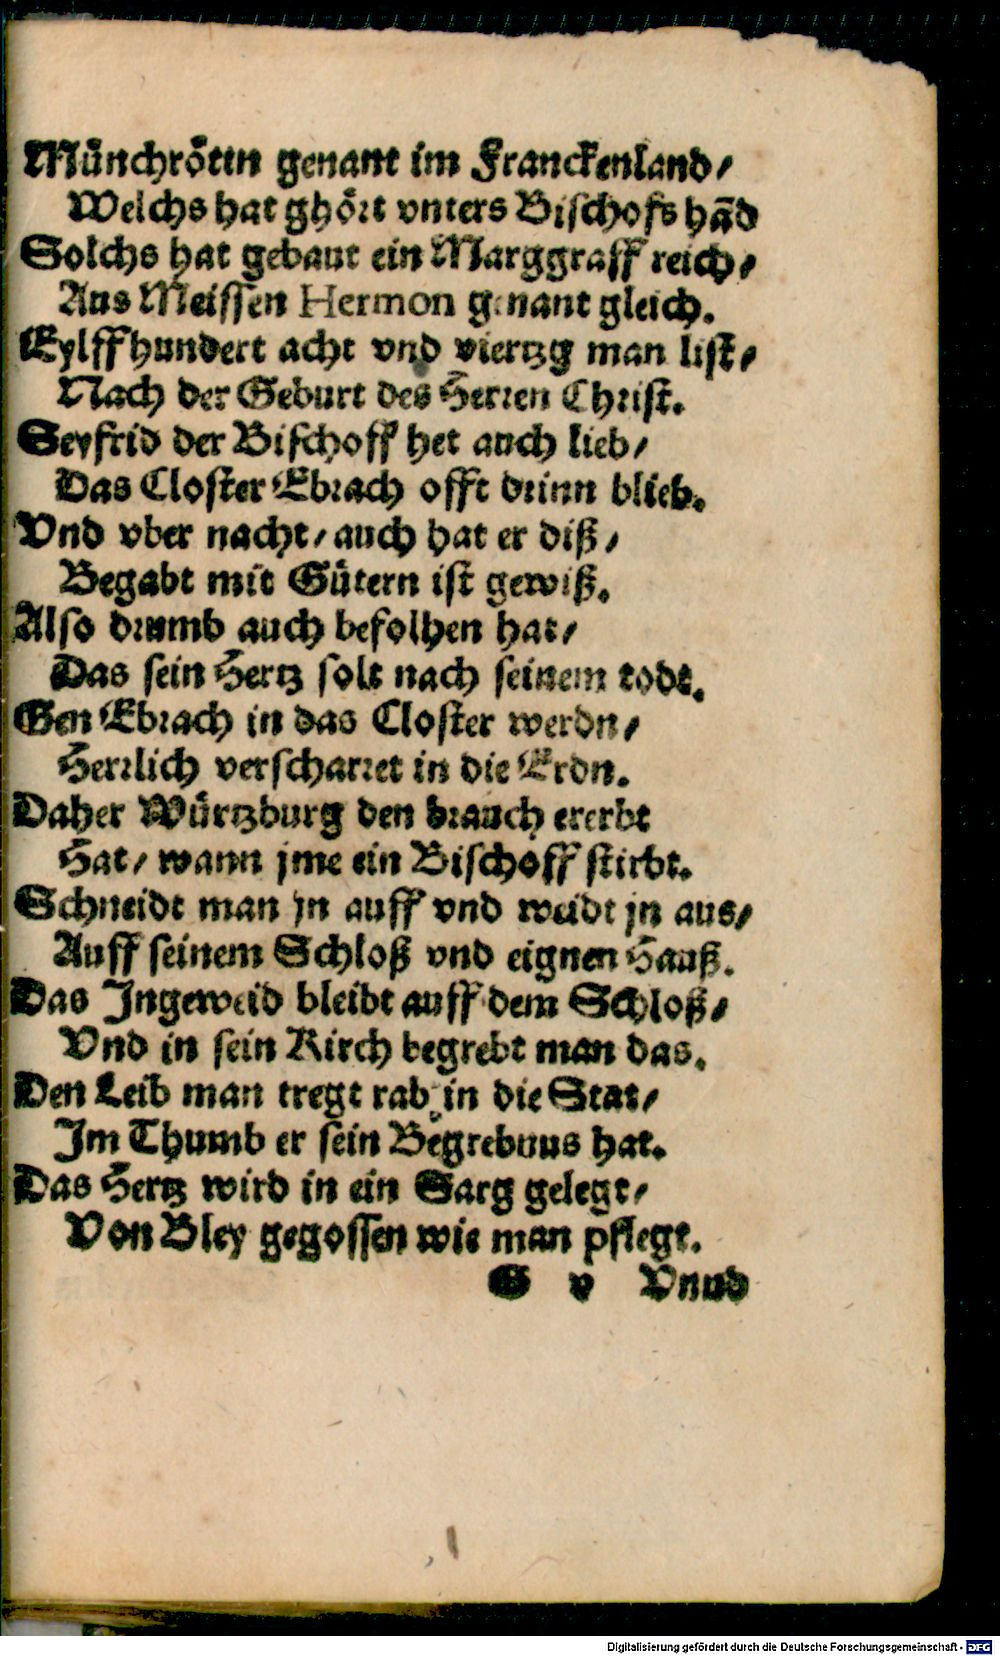 Muͤnchroͤttn genant im Franckenland/
Welchs hat ghoͤrt vnters Bischofs hãd
Solchs hat gebaut ein Marggraff reich/
Aus Meissen Hermon genant gleich.
Eylffhundert acht vnd viertzg man list/
Nach der Geburt des Herren Christ.
Seyfrid der Bischoff het auch lieb/
Das Closter Ebrach offt drinn blieb.
Vnd vber nacht/ auch hat er diß/
Begabt mit Guͤtern ist gewiß.
Also drumb auch befolhen hat/
Das sein Hertz solt nach seinem todt.
Gen Ebrach in das Closter werdn/
Herrlich verscharret in die Erdn.
Daher Wuͤrtzburg den brauch ererbt
Hat/ wann jme ein Bischoff stirbt.
Schneidt man jn auff vnd weidt jn aus/
Auff seinem Schloß vnd eignen Hauß.
Das Ingeweid bleibt auff dem Schloß/
Vnd in sein Kirch begrebt man das.
Den Leib man tregt rab in die Stat/
Im Thumb er sein Begrebnus hat.
Das Hertz wird in ein Sarg gelegt/
Von Bley gegossen wie man pflegt.
G v Vnnd
Digitalisierung gefördert durch die Deutsche Forschungsgemeinschaft - DFG